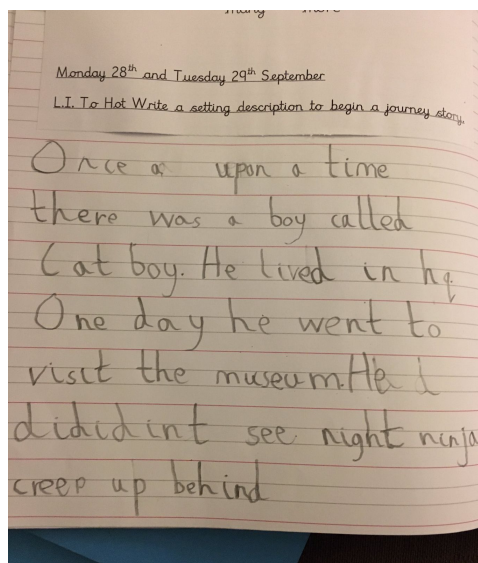 Monday 28th and Tuesday 29th September
L.I. To Hot Write a setting description to begin a journey story.
Once a upon a time
there was a boy called
Cat boy. He lived in hq
One day he went to
visit the museum. He
dididint see night ninja
creep up behind